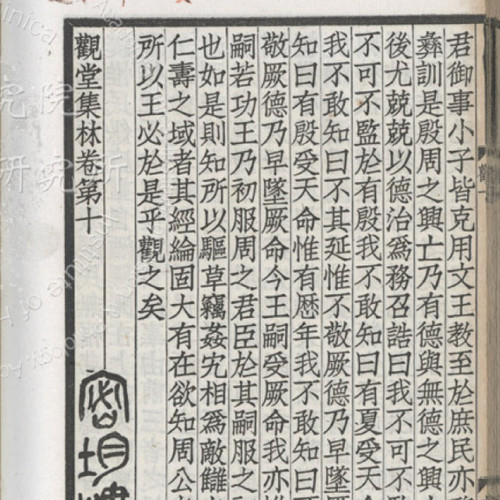 君御事小子皆克用文王教至於庶民亦
彝訓是殷周之興亡乃有德與無德之
後尤兢兢以德治爲務召誥曰我不可不
不可不監於有殷我不敢知曰有夏受天
我不敢知曰不其延惟不敬厥德乃早墜厥
知曰有殷受天命惟有歷年我不敢知曰
敬厥德乃早墜厥命今王嗣受厥命我亦惟
嗣若功王乃初服周之君臣於其嗣服之
也如是則知所以驅草竊姦宄相爲敵讎
仁壽之域者其經綸固大有在欲知周公
所以王必於是乎觀之矣
觀堂集林卷第十